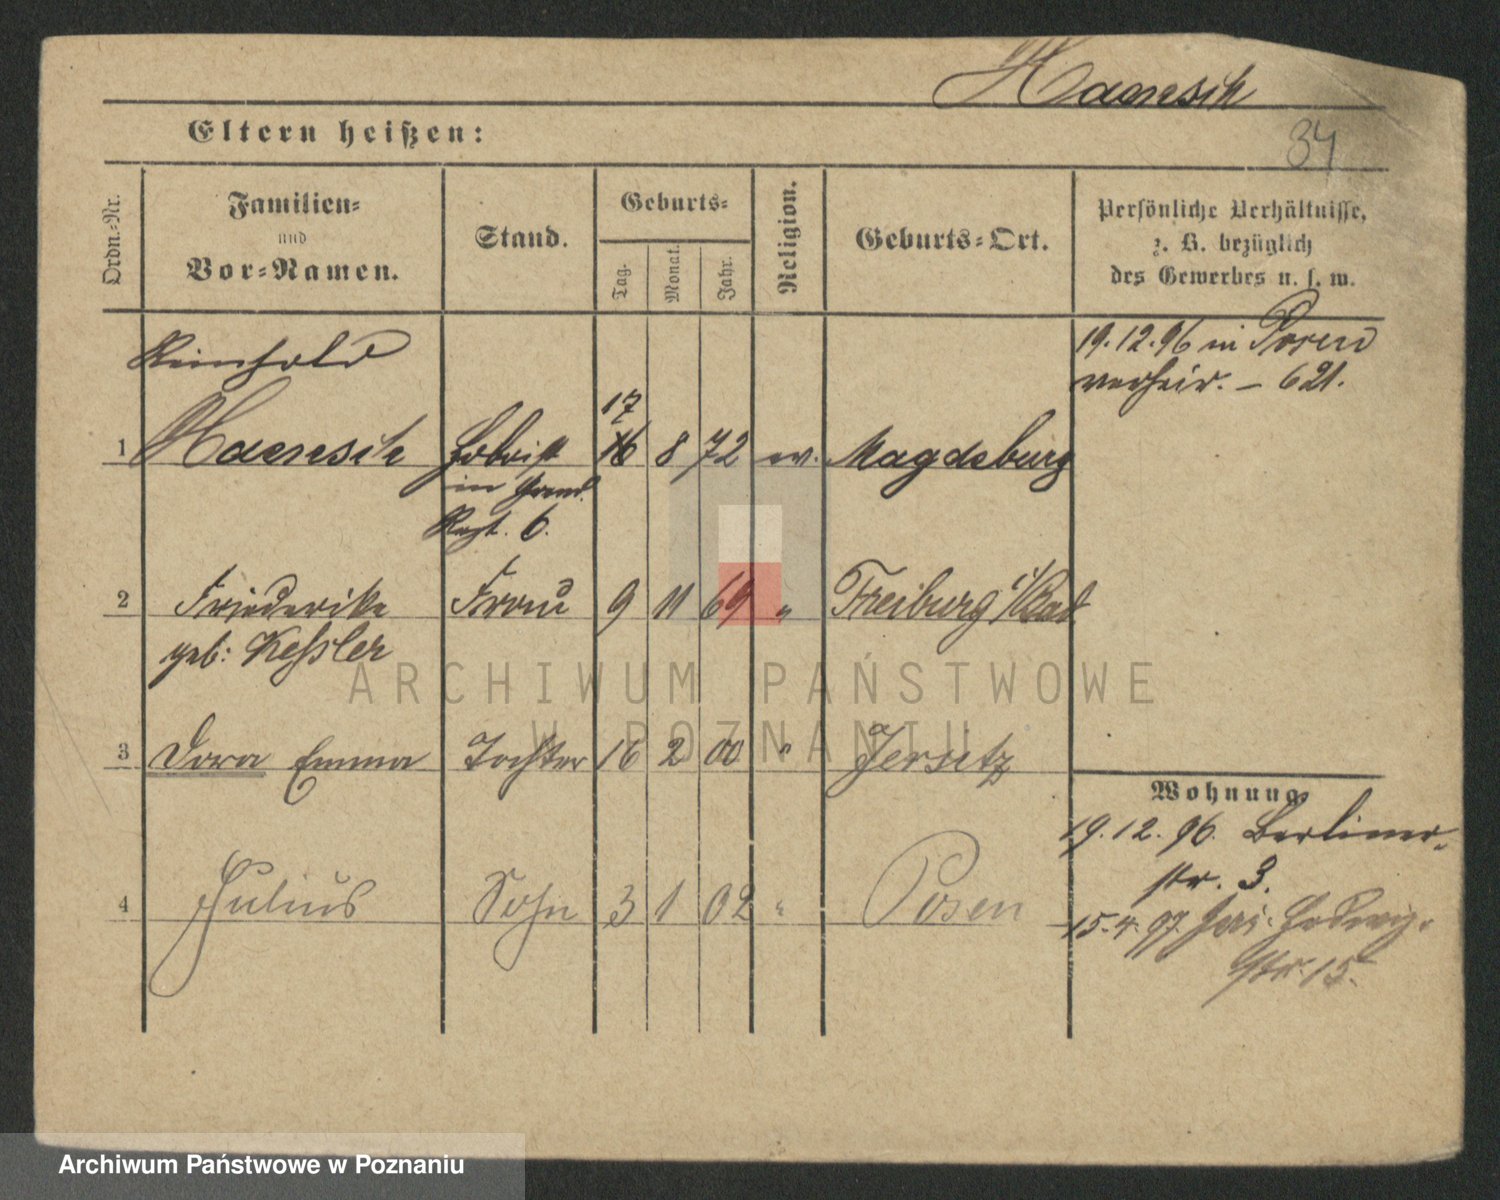 Haensch
34
Eltern heißen:
Ordn.-Nr.
Familien-
und
Vor-Namen.
Stand.
Geburts-
Tag.
Monat.
Jahr.
Religion.
Geburts-Ort.
Persönliche Verhältnisse,
z. B. bezüglich
des Gewerbes u. s. w.
19.12.96 in Posen
verheir. – 621.
Reinhold
17
1 Haensch Hoboist 16 8 72 ev. Magdeburg
im Gren.
Regt. 6.
2 Friederike Frau 9 11 69 " Freiburg i/Bad
geb: Kessler
3 Dora Emma Tochter 16 2 00 " Jersitz
Wohnung
19.12.96. Berliner-
str. 3.
4 Julius Sohn 3 1 02 " Posen
15.4.97. Jer. Hedwig-
str. 15.
ARCHIWUM PAŃSTWOWE
W POZNANIU
Archiwum Państwowe w Poznaniu